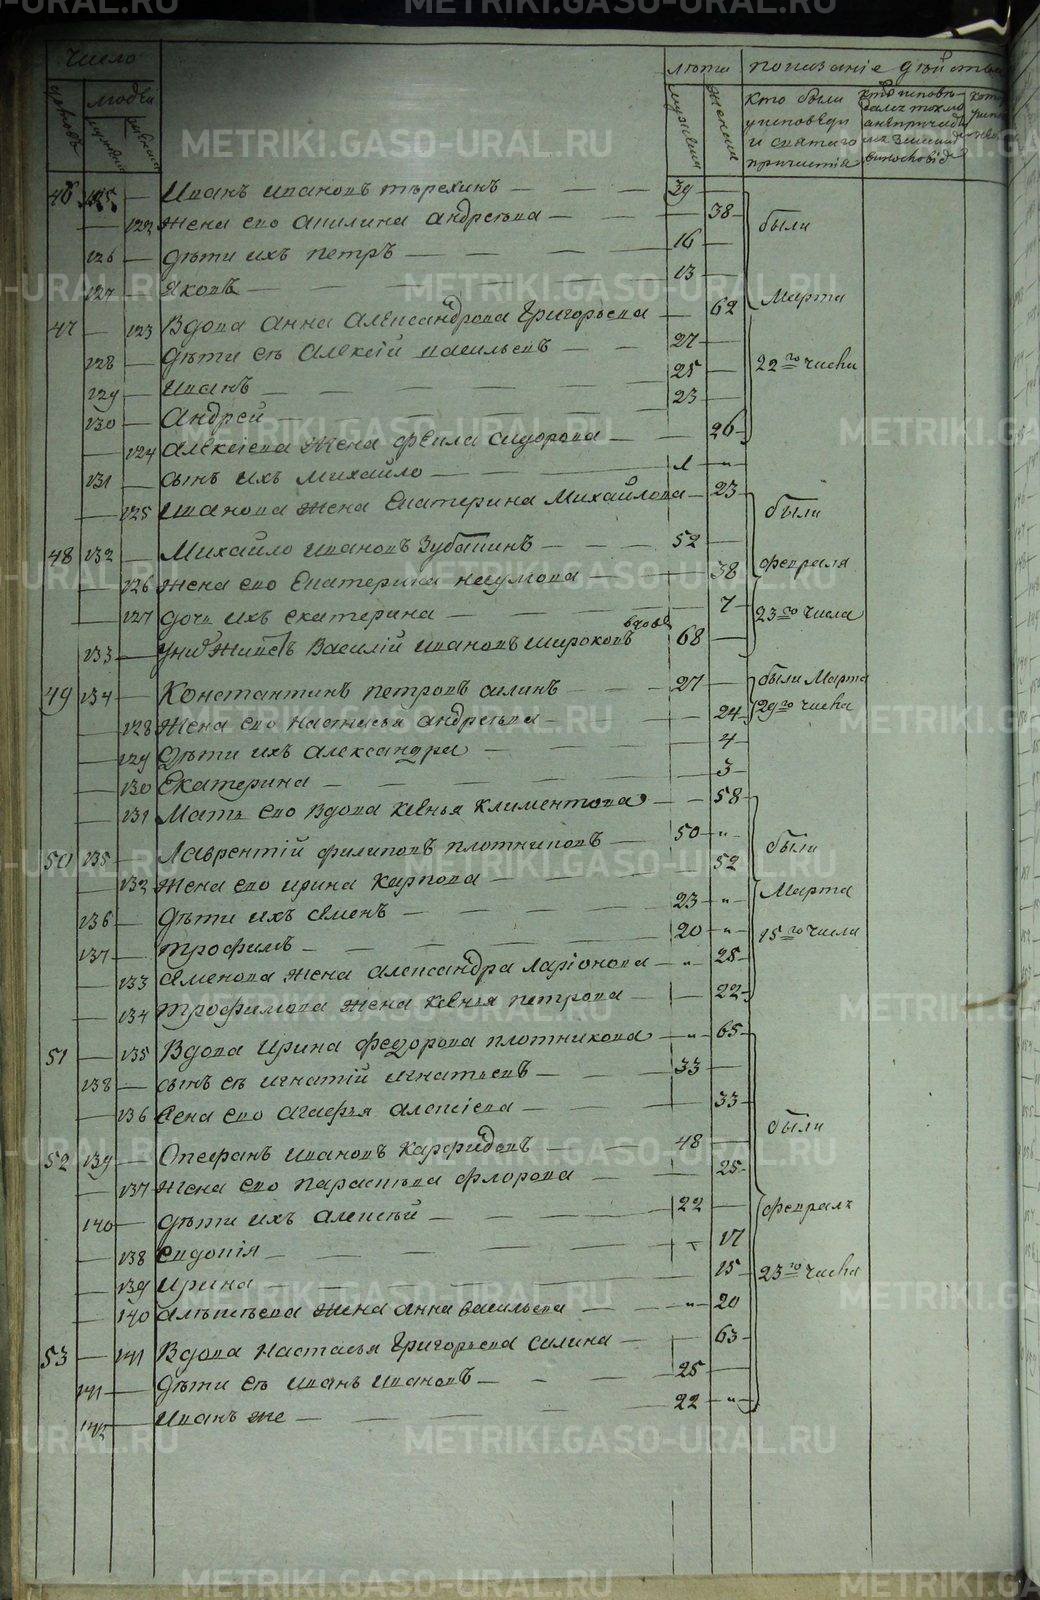 Число
Лѣта
показаніе дѣйства
дворовъ
людей
мужеска
женска
мужеска
женска
кто были
у исповеди
и святаго
причастія
46 125 Иванъ Ивановъ Тѣрехинъ 39
122 жена его Акилина Андреева 38
были
126 дѣти ихъ Петръ 16
127 Яковъ 13
Марта
47 123 Вдова Анна Александрова Григорьева 62
128 дѣти еѣ Алексѣй Васильевъ 27
22го числа
129 Иванъ 25
130 Андрей 23
124 Алексіева жена Фекла Сидорова 26
131 сынъ ихъ Михайло
125 Иванова жена Екатерина Михайлова 23
были
48 132 Михайло Ивановъ Зубакинъ 52
февраля
126 жена его Екатерина Наумова 38
127 дочь ихъ Екатерина 7
23го числа
вдовъ
133 Василій Ивановъ Широковъ 68
49 134 Константинъ Петровъ Силинъ 27
были Марта
128 жена его Настасья Андреева 24
29го числа
129 дѣти ихъ Александра 4
130 Екатерина 3
131 Мать его вдова Ксенья Климентова 58
50 135 Лаврентій Филиповъ Плотниковъ 50
были
132 жена его Ирина Карпова 52
Марта
136 дѣти ихъ Семенъ 23
137 Трофимъ 20
15го числа
133 Семенова жена Александра Ларіонова 25
134 Трофимова жена Ксенья Петрова 22
51 135 Вдова Ирина Федорова Плотникова 65
138 сынъ еѣ Игнатій Игнатьевъ 33
136 жена его Агафья Алексіева 33
были
52 139 Степанъ Ивановъ Карфидовъ 48
137 жена его Парасковья Флорова 25
140 дѣти ихъ Алексѣй 22
февраля
138 Евдокія 17
139 Ирина 15
23го числа
140 Алексѣева жена Анна Васильева 20
53 141 Вдова Настасья Григорьева Силина 63
141 дѣти еѣ Иванъ Ивановъ 25
142 Иванъ же 22
METRIKI.GASO-URAL.RU